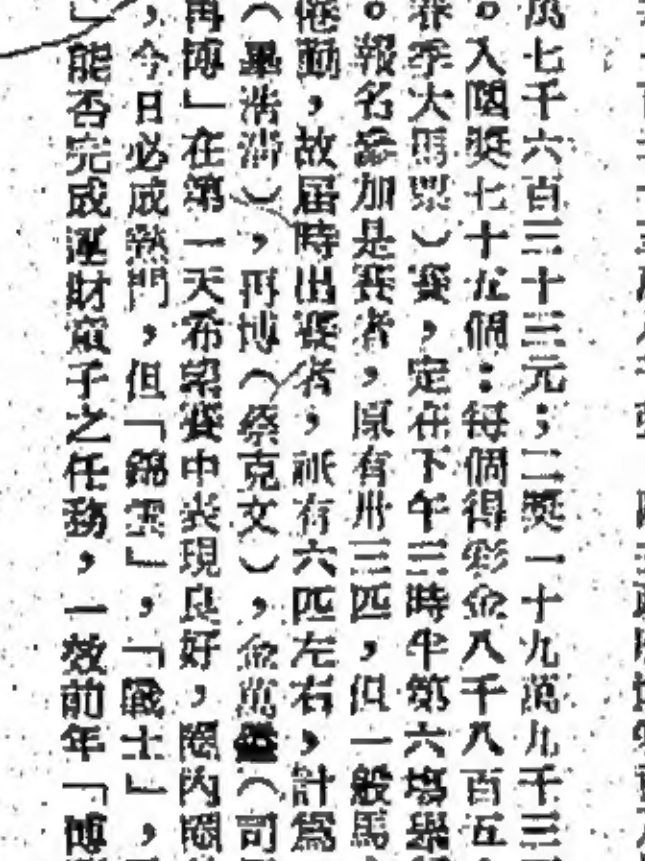 萬七千六百三十三元；二獎一十九萬九千三
。入圍獎七十五個：每個得彩金八千八百五
春季大馬票）賽，定在下午三時半第六塲舉
。報名參加是賽者，原有卅三匹，但一般馬
倦勤，故屆時出賽者，祇有六匹左右，計爲
（畢浩淸），再博（祭克文），金萬（司
再博」在第一天希望賽中表現良好，圈內
，今日必成熱門，但「錦雲」，「戰士」，
」能否完成運財童子之任務，一效前年「博